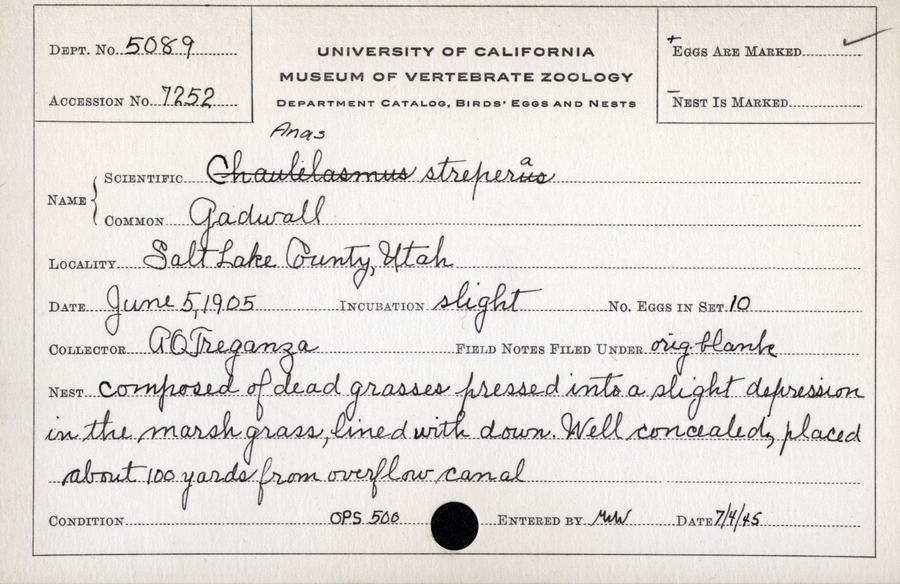 DEPT. No. 5089
ACCESSION No. 7252
UNIVERSITY OF CALIFORNIA
MUSEUM OF VERTEBRATE ZOOLOGY
DEPARTMENT CATALOG, BIRDS' EGGS AND NESTS
+EGGS ARE MARKED ✓
–NEST IS MARKED
Anas
NAME { SCIENTIFIC Chaulelasmus streperus a
COMMON Gadwall
LOCALITY Salt Lake County, Utah
DATE June 5, 1905 INCUBATION slight NO. EGGS IN SET 10
COLLECTOR AO Treganza FIELD NOTES FILED UNDER orig. blank
NEST composed of dead grasses pressed into a slight depression
in the marsh grass, lined with down. Well concealed, placed
about 100 yards from overflow canal
CONDITION OPS 500 ENTERED BY MWW DATE 7/4/45